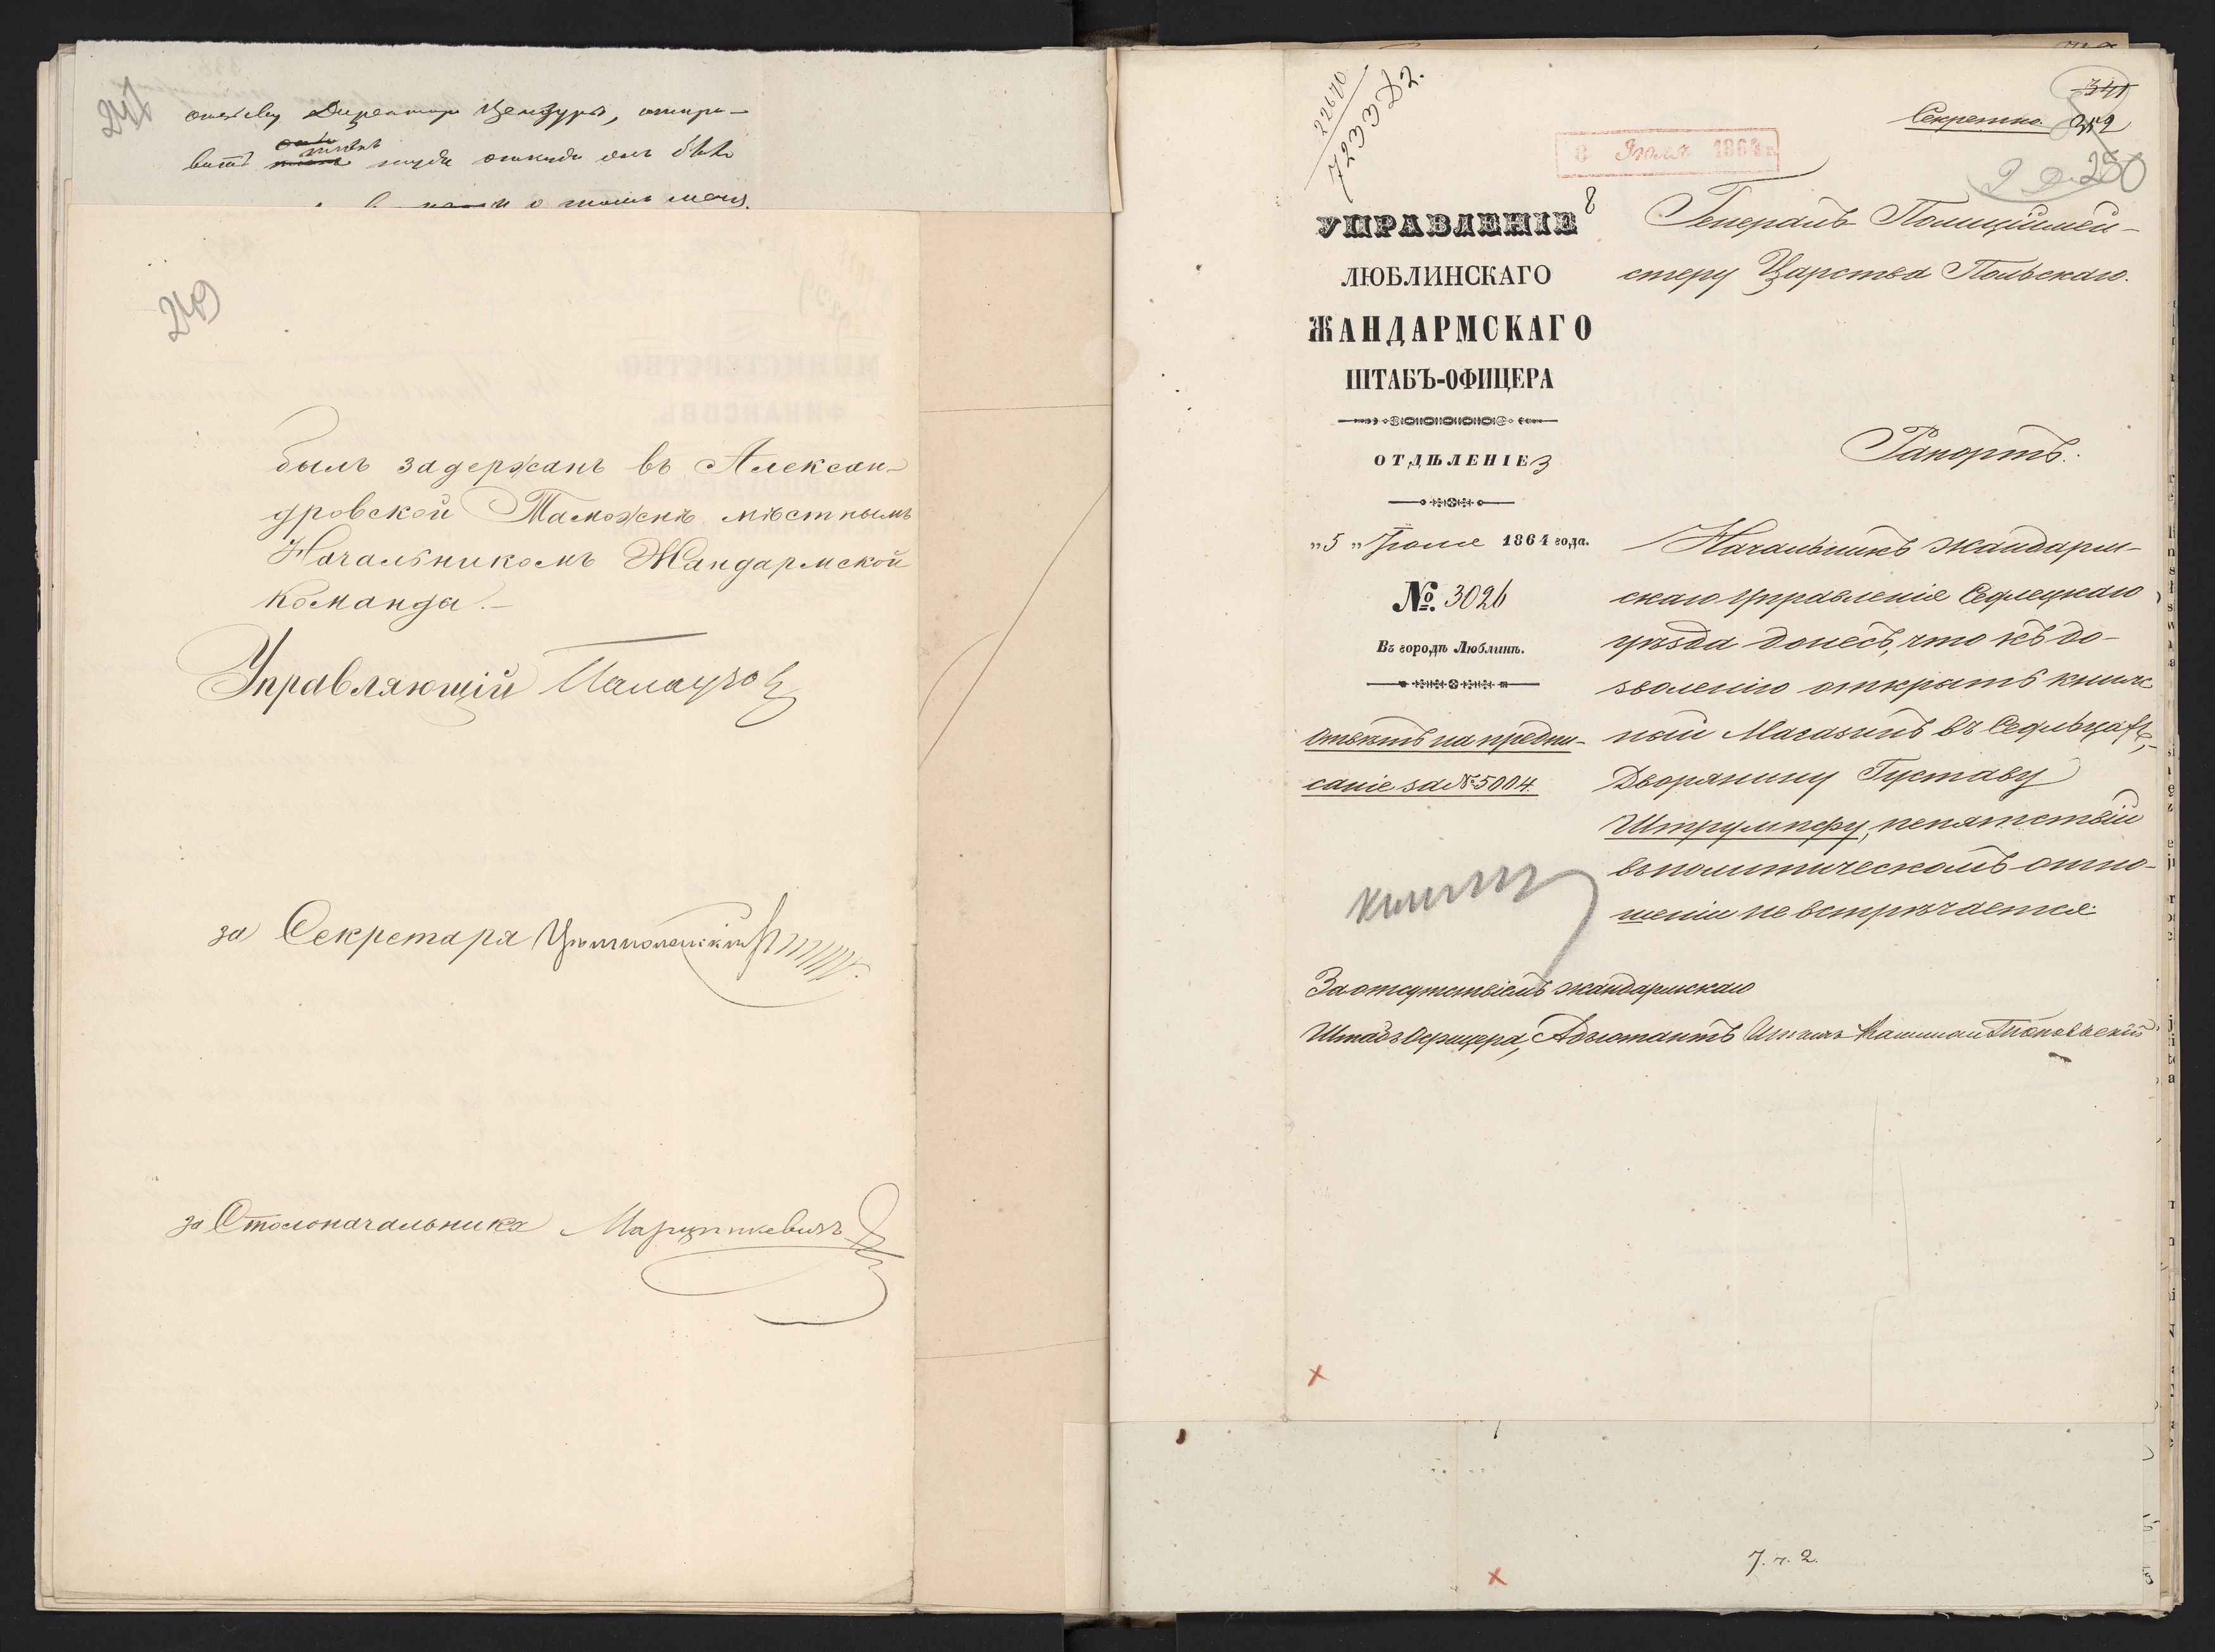 241
Директору Цензуры, отпра-
вить туда откуда онъ былъ
249
былъ задержанъ въ Алексан-
дровской Таможнѣ мѣстнымъ
Начальникомъ Жандармской
команды.
Управляющій
за Секретаря
за Столоначальника Марцинкевичъ
22670
7233 Д2.
341
Секретно.
250
8 Іюля 1864 г.
8
УПРАВЛЕНІЕ
ЛЮБЛИНСКАГО
ЖАНДАРМСКАГО
ШТАБЪ-ОФИЦЕРА
ОТДѢЛЕНІЕ 3
„5„ Іюля 1864 года.
№. 3026
Въ городѣ Люблинѣ.
Отвѣтъ на предпи-
саніе за № 5004.
Генералъ Полиціймей-
стеру Царства Польскаго.
Рапортъ.
Начальникъ жандарм-
скаго управленія Седлецкаго
уѣзда донесъ, что къ до-
зволенію открыть книж-
ный Магазинъ въ Седльцахъ,
Дворянину Густаву
Штрумпфу, препятствій
въ политическомъ отно-
шеніи не встрѣчается.
За отсутствіемъ жандармскаго
Штабъ Офицера, Адъютантъ
7. ч. 2.